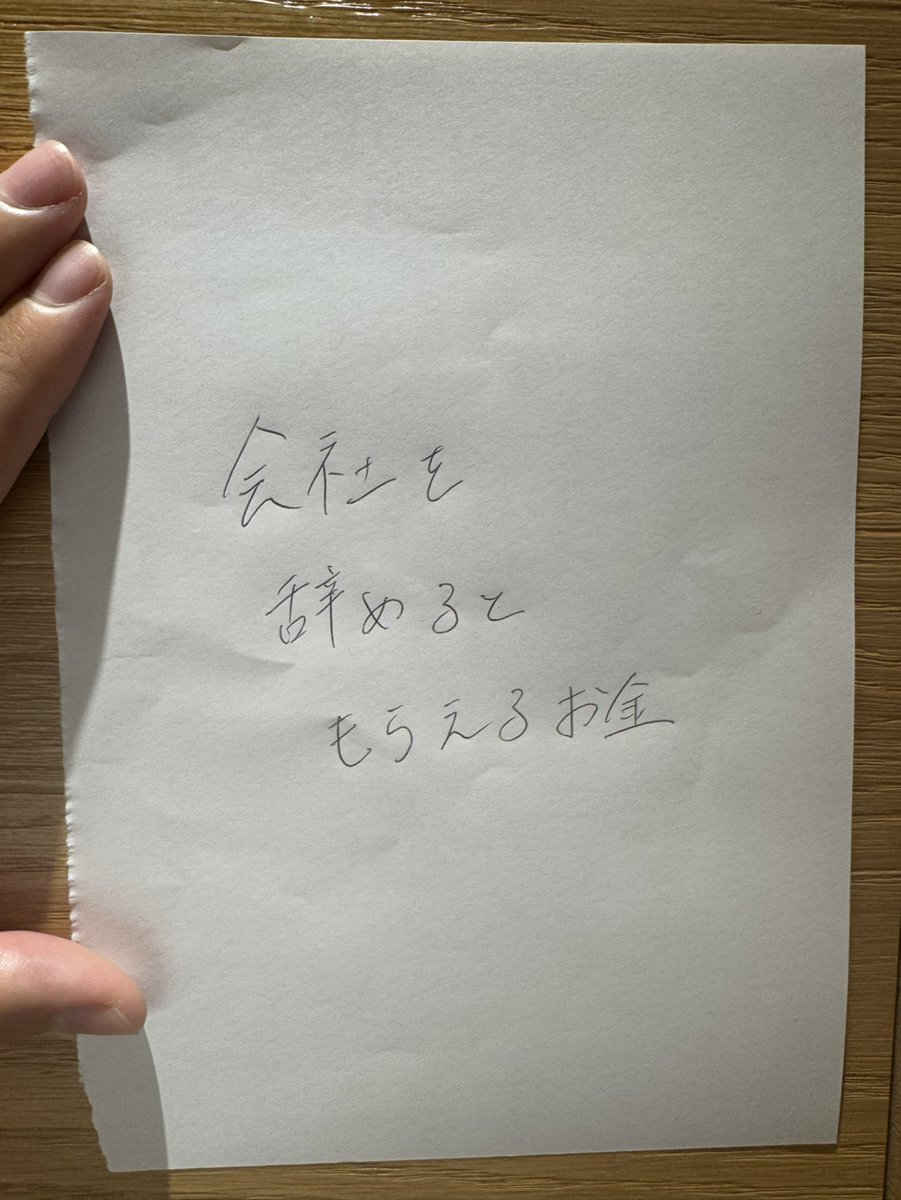 会社を
辞めると
もらえるお金